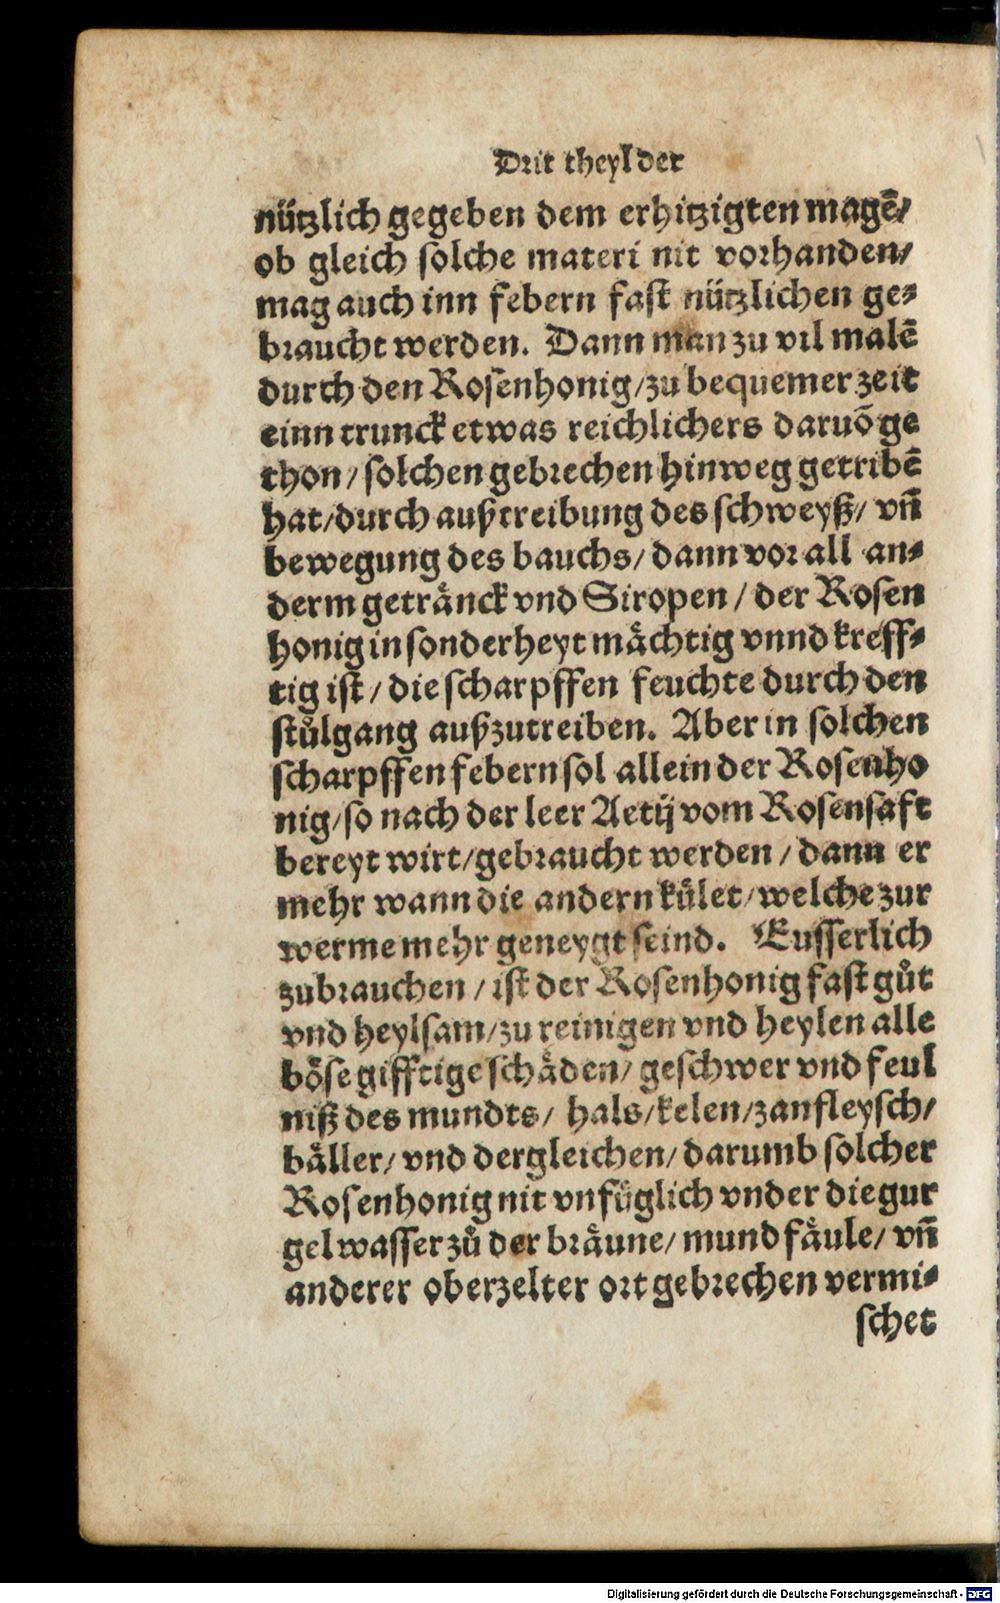 Drit theyl der
nützlich gegeben dem erhitzigten magē/
ob gleich solche materi nit vorhanden/
mag auch inn febern fast nützlichen ge⸗
braucht werden. Dann man zu vil malē
durch den Rosenhonig/zu bequemer zeit
einn trunck etwas reichlichers daruō ge
thon/solchen gebrechen hinweg getribē
hat/durch außtreibung des schweyß/ vñ
bewegung des bauchs/dann vor all an⸗
derm getränck vnd Siropen/der Rosen
honig in sonderheyt mächtig vnnd kreff⸗
tig ist/die scharpffen feuchte durch den
stůlgang außzutreiben. Aber in solchen
scharpffen febern sol allein der Rosenho
nig/so nach der leer Aetij vom Rosensaft
bereyt wirt/gebraucht werden/dann er
mehr wann die andern kület/welche zur
werme mehr geneygt seind. Eusserlich
zubrauchen/ist der Rosenhonig fast gůt
vnd heylsam/zu reinigen vnd heylen alle
böse gifftige schäden/geschwer vnd feul
niß des mundts/ hals/kelen/zanfleysch/
bäller/vnd dergleichen/darumb solcher
Rosenhonig nit vnfüglich vnder die gur
gelwasser zů der bräune/mundfäule/vñ
anderer oberzelter ort gebrechen vermi⸗
schet
Digitalisierung gefördert durch die Deutsche Forschungsgemeinschaft - DFG